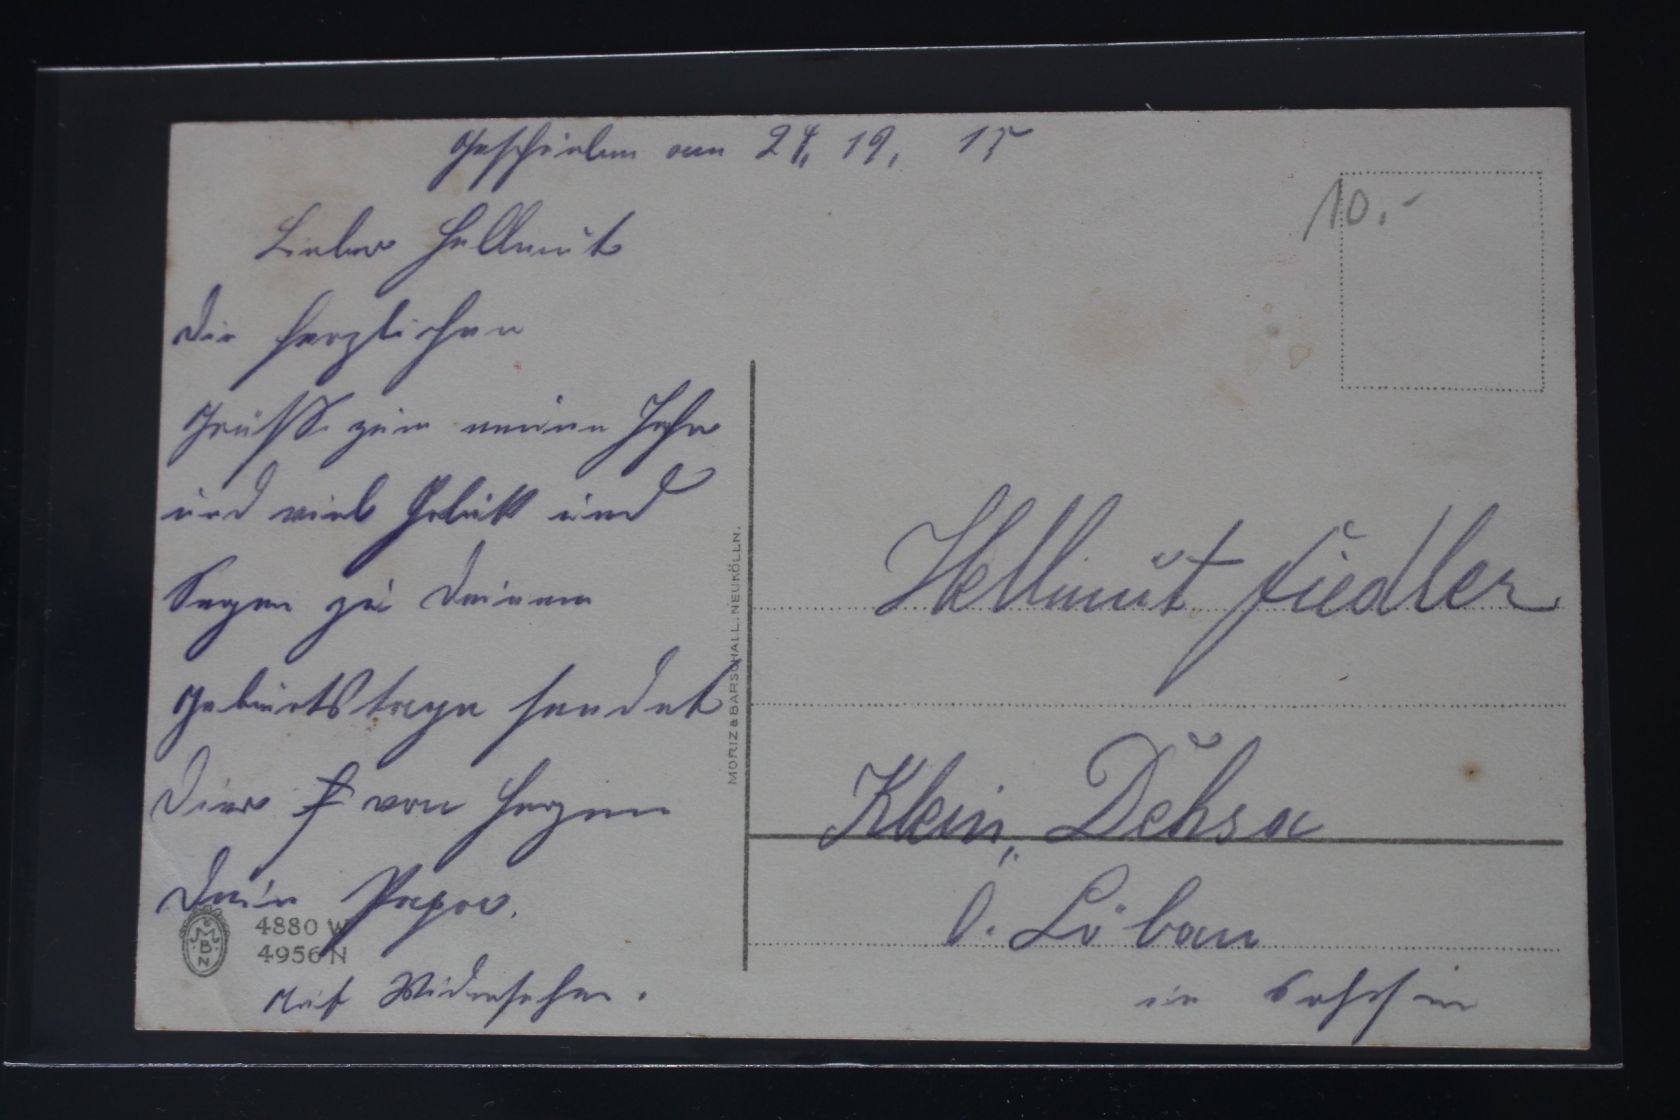 Geschrieben am 24. 12. 15
Lieber Hellmut
Die herzlichen
Grüsse zum neuen Jahr
und viel Glück und
Segen zu deinem
Geburtstage sendet
Dier von Herzen
Dein Papa.
Auf Widersehen.
MORIZ & BARSCHALL. NEUKÖLLN.
MBN
4880 W
4956 N
10.-
Hellmut Fiedler
Klein, Dehsa
b. Löbau
in Sachsen